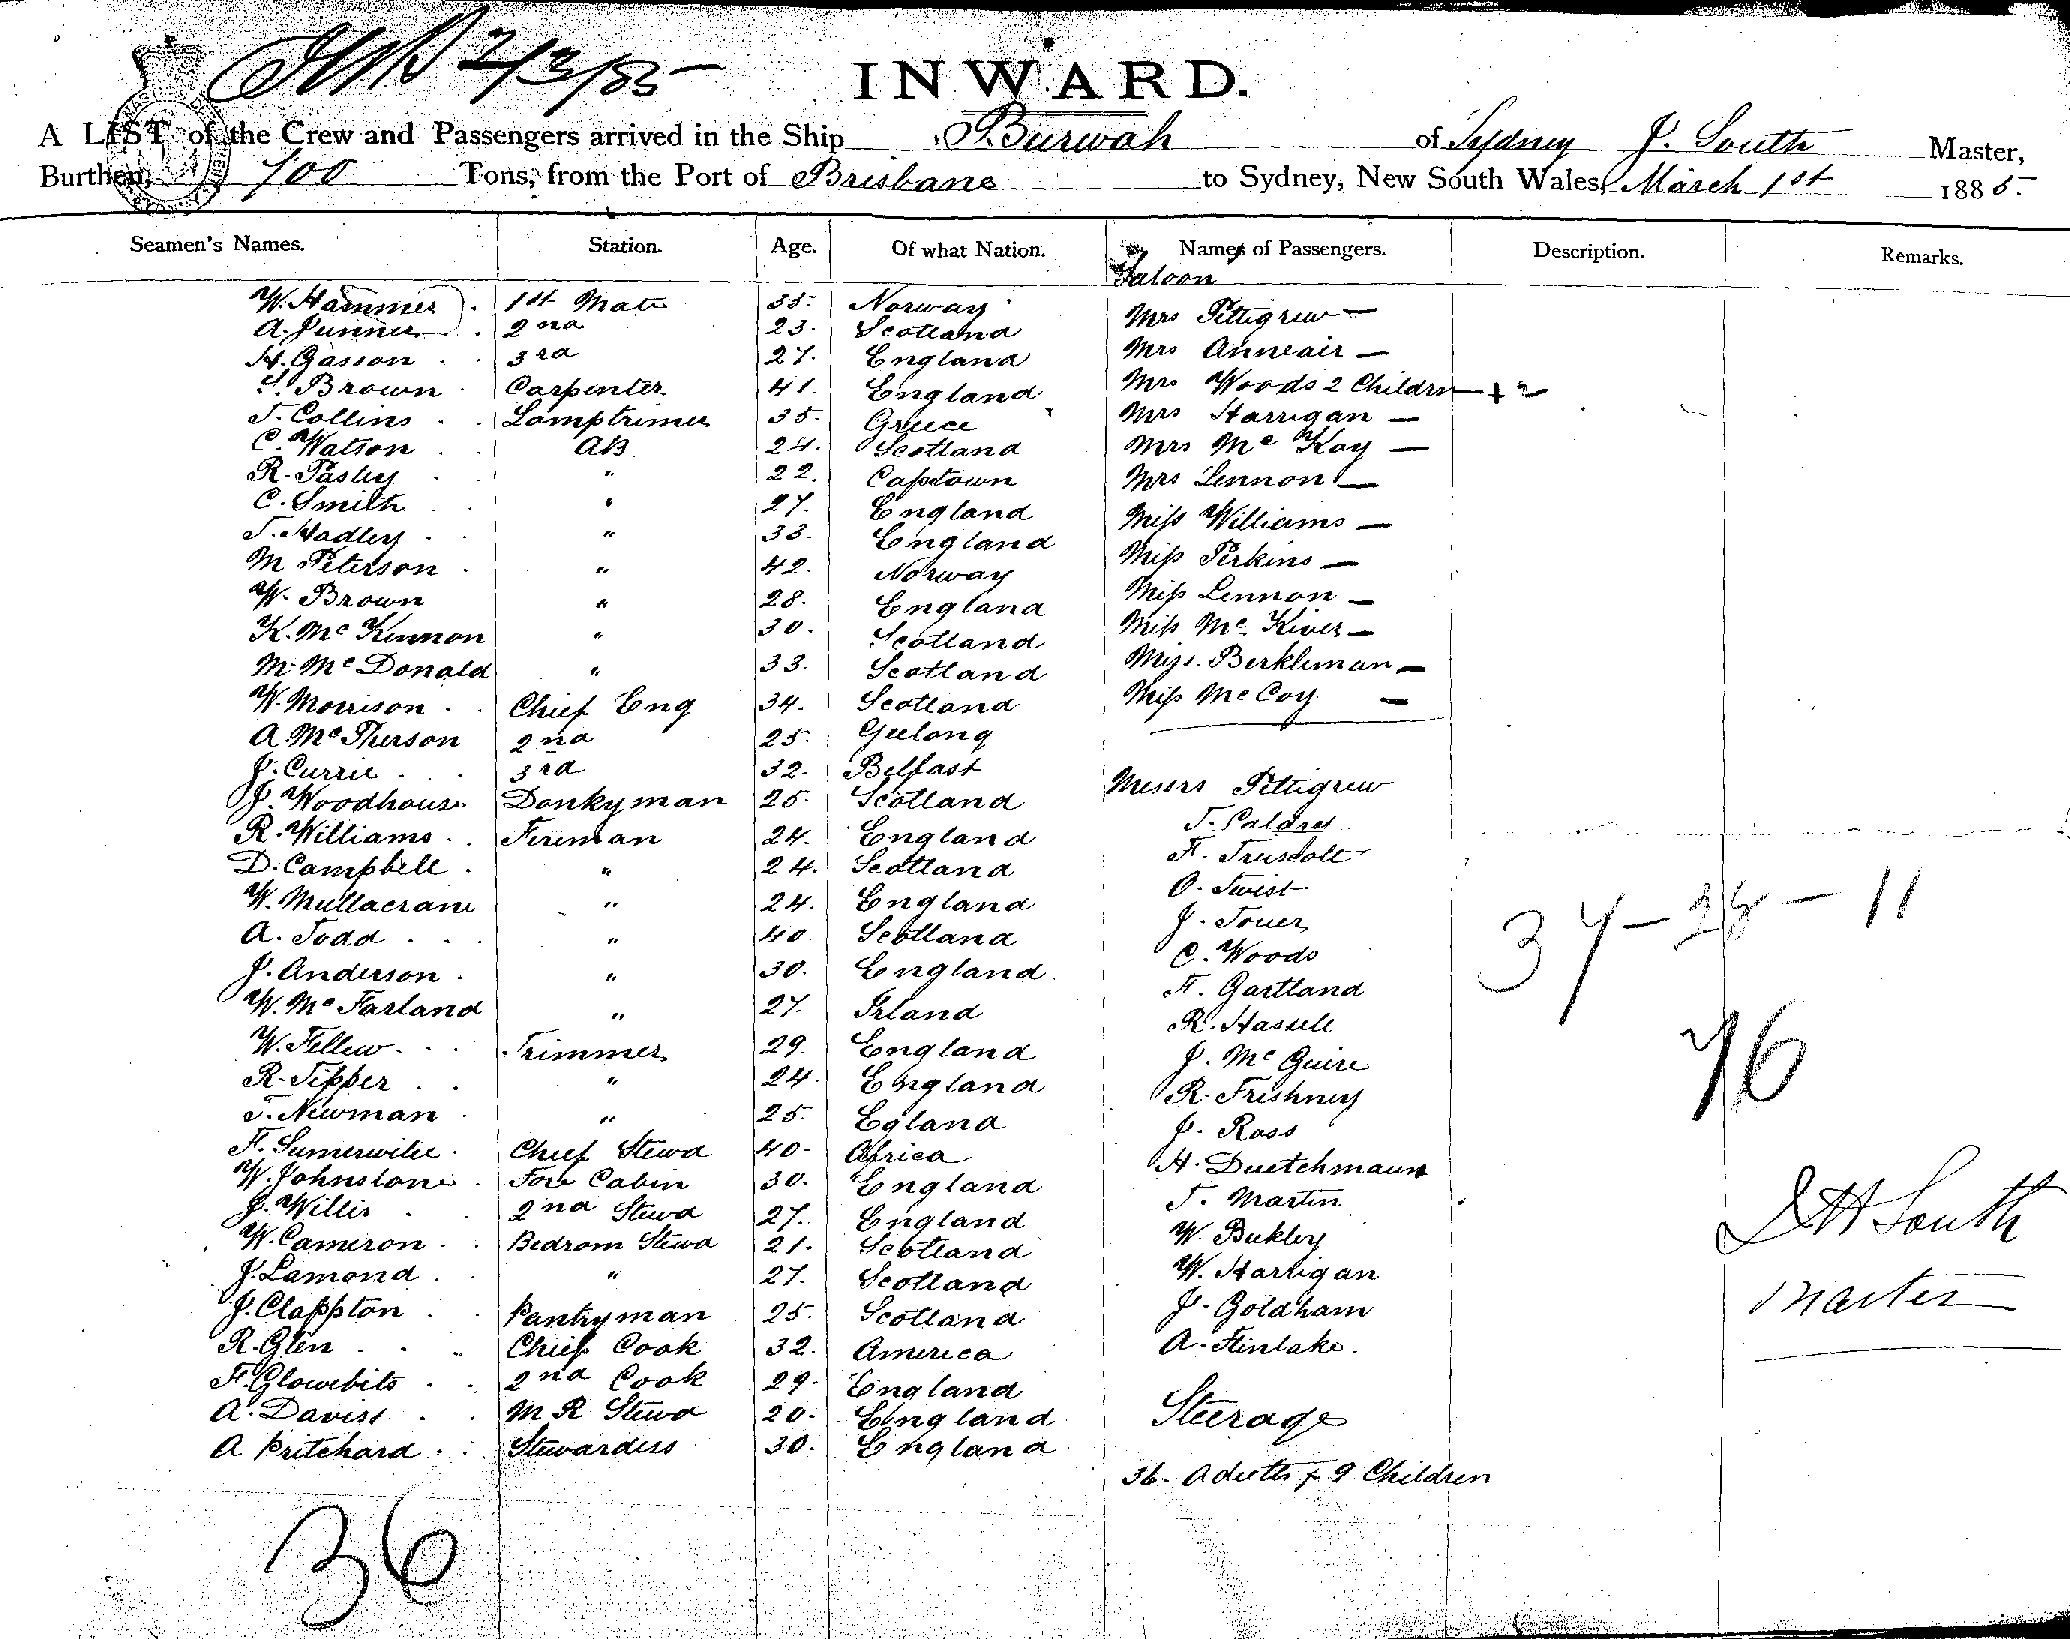 2/3/85
INWARD.
A LIST of the Crew and Passengers arrived in the Ship Burwah of Sydney J. South Master,
Burthen, 700 Tons, from the Port of Brisbane to Sydney, New South Wales, March 1st 1885.
Seamen's Names. Station. Age. Of what Nation. Names of Passengers. Description. Remarks.
Saloon
W. Hammer 1st Mate 35. Norway Mrs Pettigrew —
A. 2nd 23. Scotland Mrs Anneair —
H. Gasson 3rd 27. England Mrs Woods 2 Childrn — + 2
Brown Carpenter 41. England Mrs Harrigan —
T. Collins Lamptrimer 35. Greece Mrs Mc Kay —
C. Watson AB 24. Scotland Mrs Lennon —
R. Pasley " 22. Captown Miss Williams —
C. Smith " 27. England Miss Perkins —
T. Hadley " 33. England Miss Lennon —
M Peterson " 42. Norway Miss Mc Kiver —
W. Brown " 28. England Miss. Berkliman —
K. Mc Kinnon " 30. Scotland Miss McCoy —
M. Mc Donald " 33. Scotland
W. Morrison Chief Eng 34. Scotland
A. Mc Pherson 2nd 25. Geelong
J. Currie 3rd 32. Belfast Messrs Pettigrew
J. Woodhouse Donkyman 25. Scotland
R. Williams Fireman 24. England F.
D. Campbell " 24. Scotland O. Twist
W. Mullacrane " 24. England J. Touer
A. Todd " 40 Scotland C. Woods 34 - 28 - 11
J. Anderson " 30. England. F. Gartland
W. Mc Farland " 27. Irland R. Hassell
W. Fellew Trimmer 29. England J. Mc Guire 76
R. Tipper " 24. England R. Frishney
T. Newman " 25. Egland J. Ross
F. Sumerwilie Chief Stewd 40. Africa H. Duetchmaun
W. Johnstone Fore Cabin 30. England T. Martin
J. Willis 2nd Stewd 27. England W. Bukley J H South
W. Cameron Bedrom Stewd 21. Scotland W. Harrigan
J. Lamond " 27. Scotland J. Goldham master
J. Clappton Pantryman 25. Scotland A. Hinlake.
R. Glen Chief Cook 32. America
F. Glowebits 2nd Cook 29. England Steerage
A. Daviss M R Stewd 20. England
A Pritchard Stewardess 30. England 36. Adults + 9 Children
36